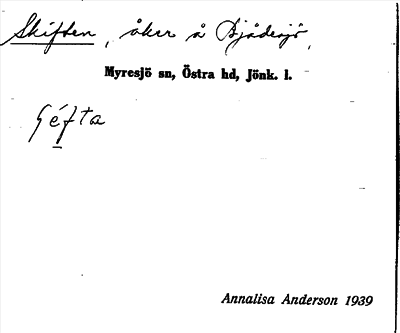 Skiften, åker å Bjädesjö,
Myresjö sn, Östra hd, Jönk. l.
Annalisa Anderson 1939